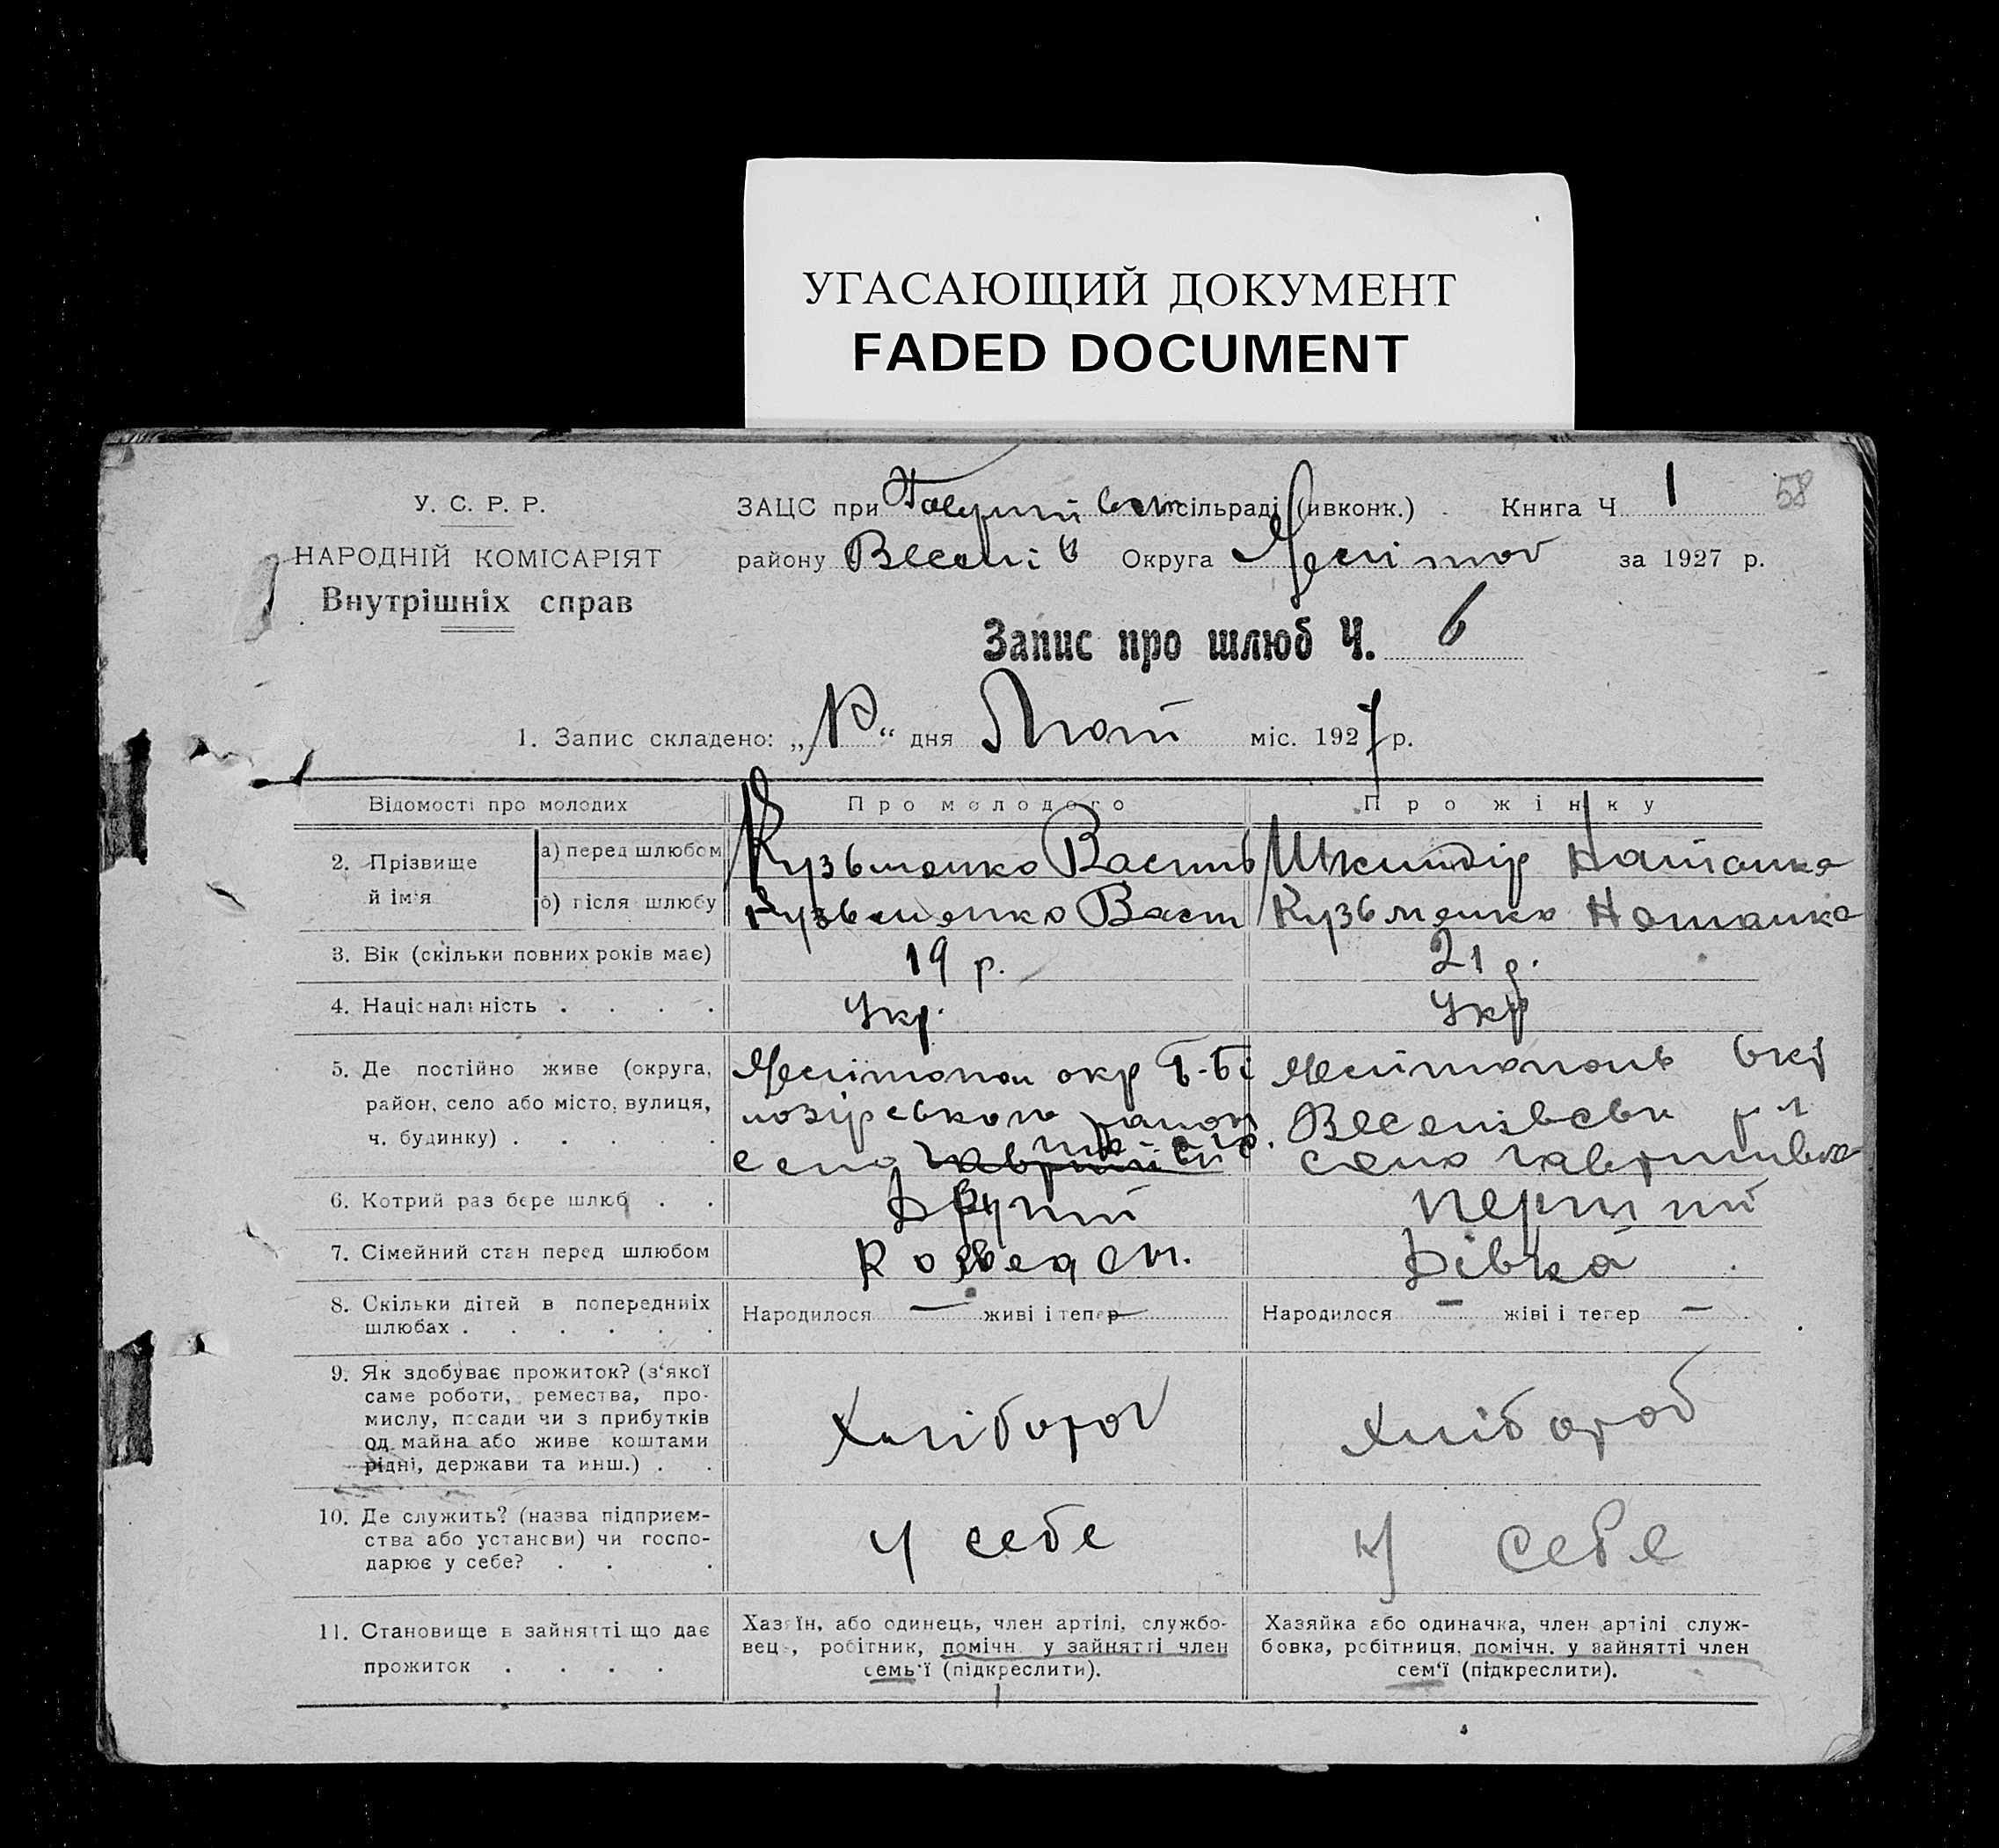 УГАСАЮЩИЙ ДОКУМЕНТ
FADED DOCUMENT
58
У. С. Р. Р.
НАРОДНІЙ КОМІСАРІЯТ
Внутрішніх справ
ЗАЦС при сільраді (ивконк.) Книга Ч. 1
району Весел Округа за 1927 р.
Запис про шлюб Ч. 6
1. Запис складено: „ “ дня Лют міс. 1927 р.
Відомості про молодих
Про молодого
Про жінку
2. Прізвище й ім'я
а) перед шлюбом
Кузьменко Василь
Наталка
б) після шлюбу
Кузьменко Васил
Кузьменко Наталка
3. Вік (скільки повних років має)
19 р.
21 р.
4. Національність . . . .
Укр.
Укр
5. Де постійно живе (округа,
район, село або місто, вулиця,
ч. будинку) . . . . .
Мелітопол окр Б-Бі
лозірського район
село
Мелітополь окр
Веселівськ р
село Гаврилівка
6. Котрий раз бере шлюб . .
Другий
перший
7. Сімейний стан перед шлюбом
Дівка
8. Скільки дітей в попередніх
шлюбах . . . . . .
Народилося — живі і тепер —
Народилося — живі і тепер —
9. Як здобуває прожиток? (з'якої
саме роботи, ремества, про-
мислу, посади чи з прибутків
од майна або живе коштами
рідні, держави та инш.) . .
Хлібороб
Хлібороб
10. Де служить? (назва підприєм-
ства або установи) чи госпо-
дарює у себе? . . .
У себе
У себе
11. Становище в зайнятті що дає
прожиток . . . .
Хазяїн, або одинець, член артілі, службо-
вець, робітник, помічн. у зайнятті член
семь'ї (підкреслити).
Хазяйка або одиначка, член артілі служ-
бовка, робітниця, помічн. у зайнятті член
сем'ї (підкреслити).